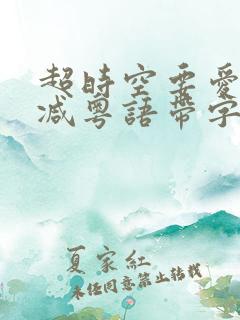 超時空要愛
減粵語帶字
夏家紅
未经同意禁止转载